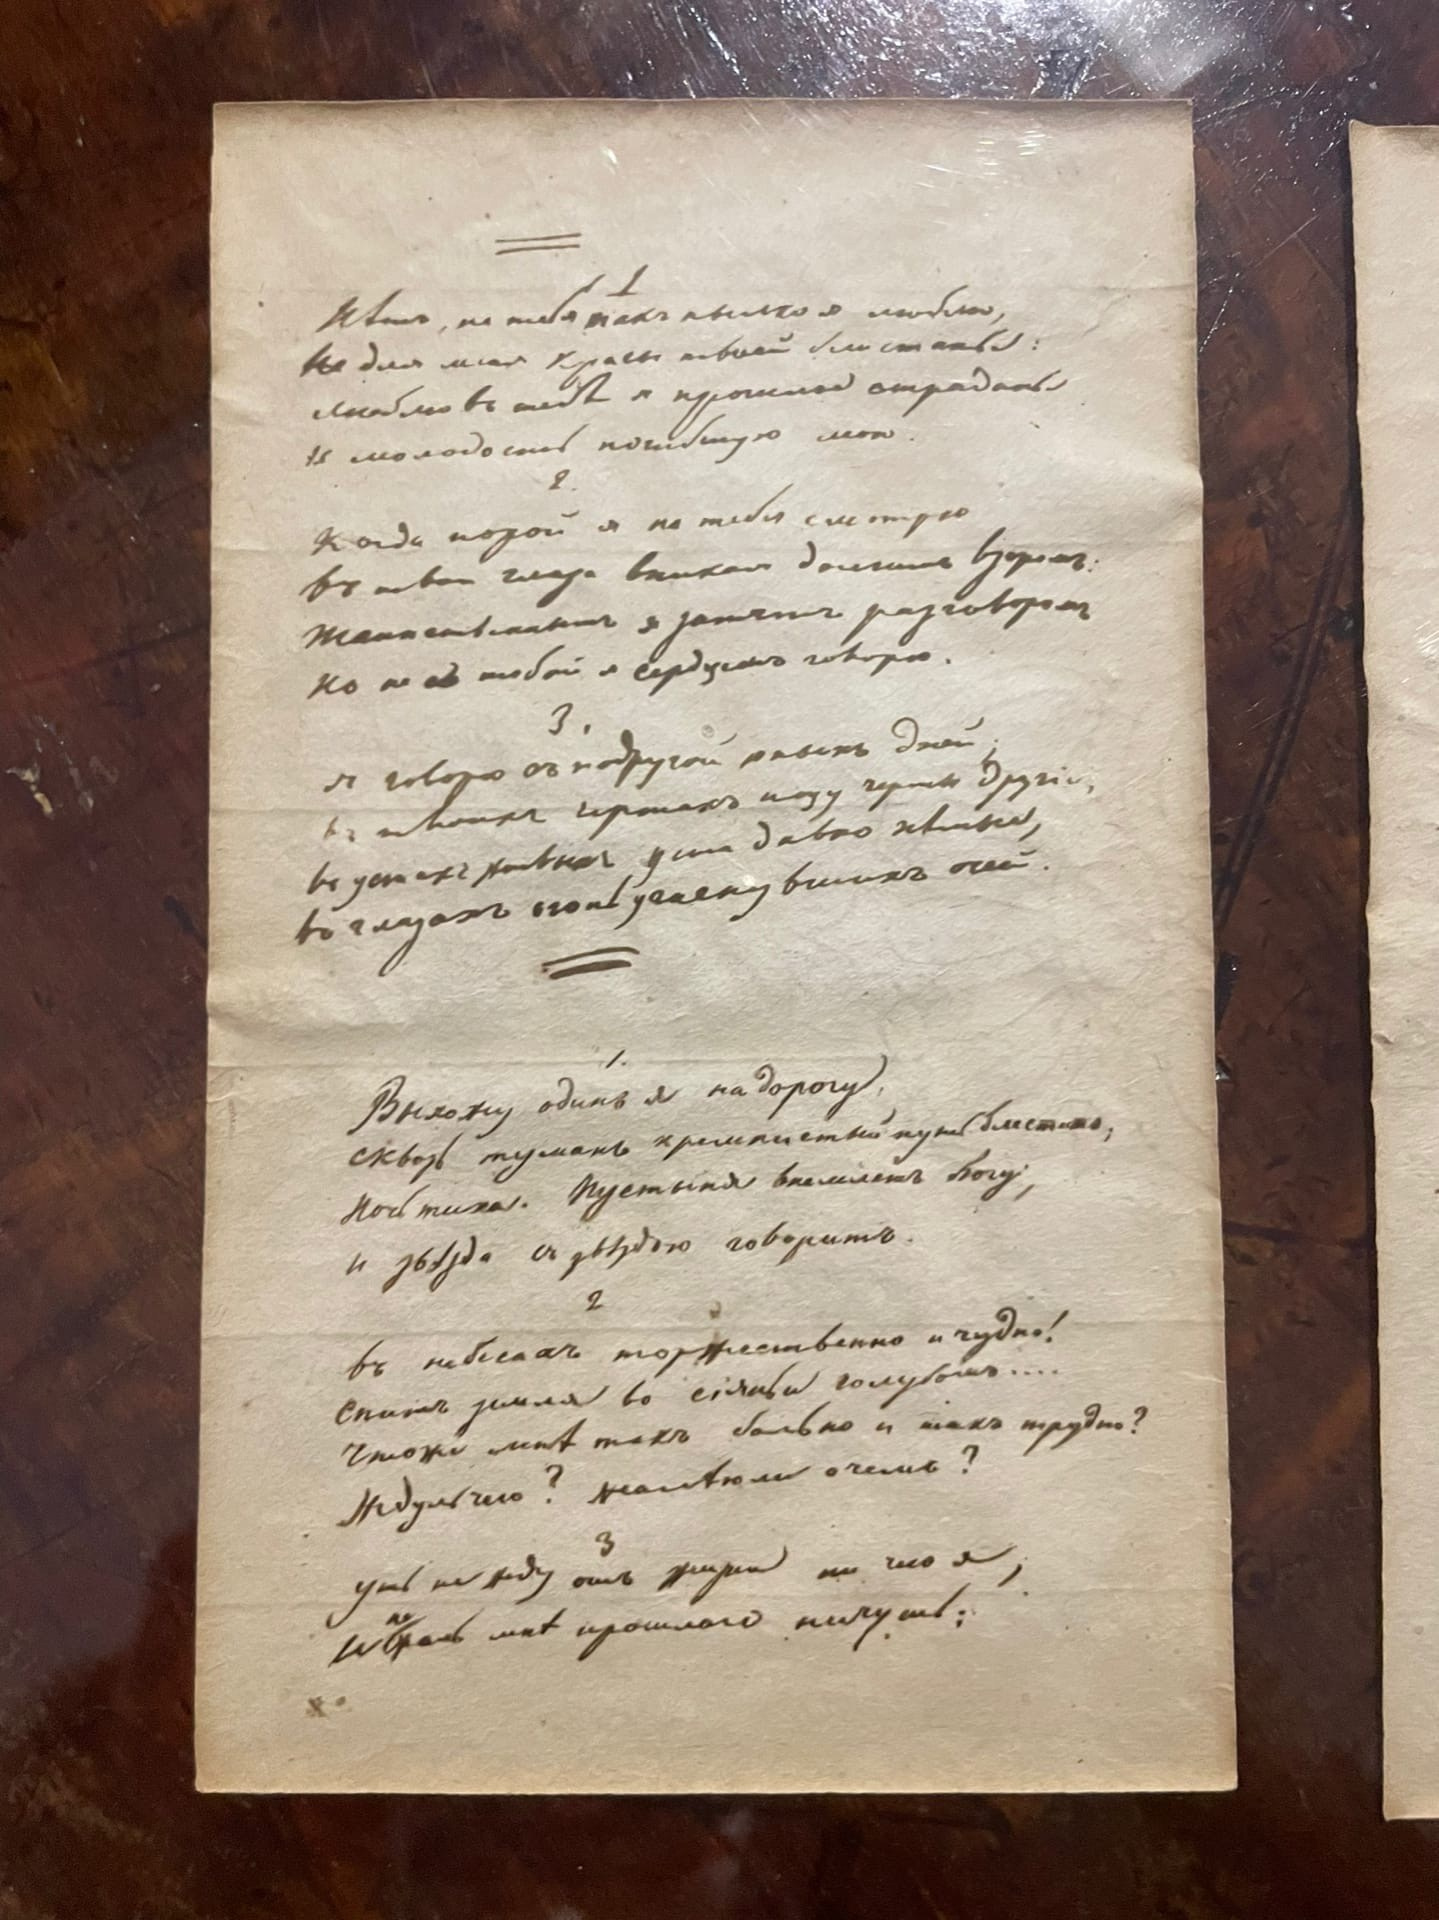 1
Нѣтъ, не тебя такъ пылко я люблю,
Не для меня красы твоей блистанье:
Люблю въ тебѣ я прошлое страданье
И молодость погибшую мою.
2.
Когда порой я на тебя смотрю
Въ твои глаза вникая долгимъ взоромъ:
Таинственнымъ я занятъ разговоромъ
Но не съ тобой я сердцемъ говорю.
3.
Я говорю съ подругой юныхъ дней;
Въ твоихъ чертахъ ищу черты другія,
Въ устахъ живыхъ уста давно нѣмые,
Въ глазахъ огонь угаснувшихъ очей.
1.
Выхожу одинъ я на дорогу;
Сквозь туманъ кремнистый путь блеститъ;
Ночь тиха. Пустыня внемлетъ Богу,
И звѣзда съ звѣздою говоритъ.
2
Въ небесахъ торжественно и чудно!
Спитъ земля въ сіяньи голубомъ....
Что же мнѣ такъ больно и такъ трудно?
Жду ль чего? жалѣю ли о чемъ?
3
Ужъ не жду отъ жизни ничего я,
И не жаль мнѣ прошлаго ничуть;